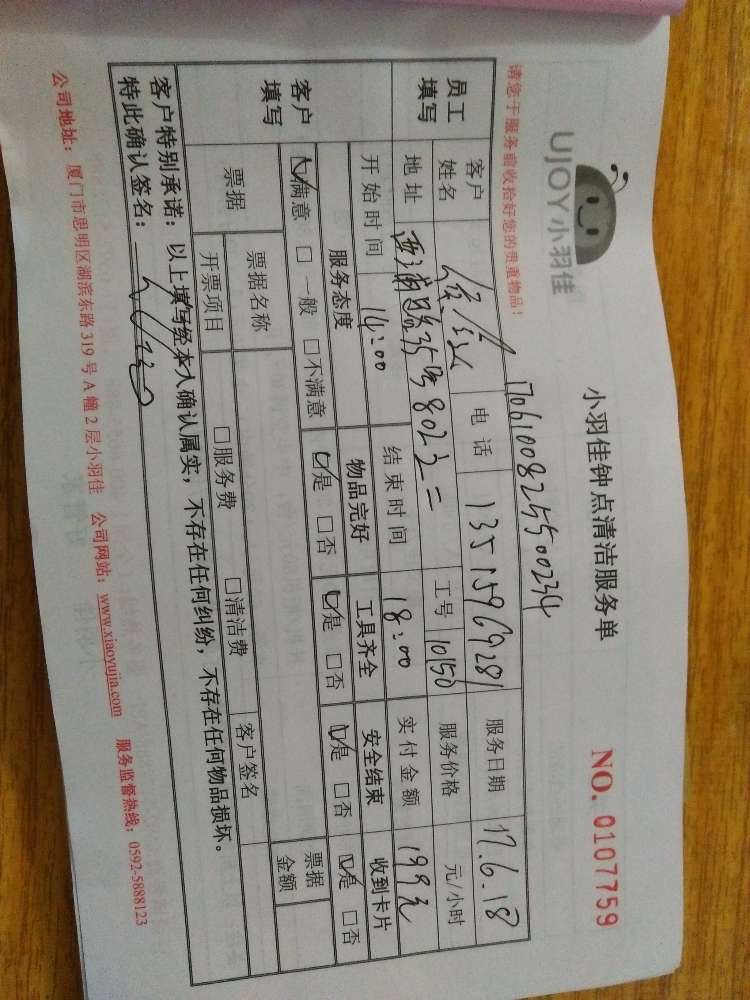 UJOY小羽佳
小羽佳钟点清洁服务单
NO. 0107759
请您于服务前收拾好您的贵重物品!
员工填写
客户姓名
电话 13515969281
服务日期 17.6.18
地址 西浦路35号802之二
工号 10150
服务价格 元/小时
开始时间 14:00
结束时间 18:00
实付金额 199元
客户填写
服务态度 物品完好 工具齐全 安全结束 收到卡片
☑满意 □一般 □不满意 ☑是 □否 ☑是 □否 ☑是 □否 ☑是 □否
票据
票据名称
票据金额
开票项目 □服务费 □清洁费
客户签名
客户特别承诺:以上填写经本人确认属实,不存在任何纠纷,不存在任何物品损坏。
特此确认签名:
公司地址:厦门市思明区湖滨东路319号A幢2层小羽佳 公司网站:www.xiaoyujia.com 服务监督热线:0592-5888123